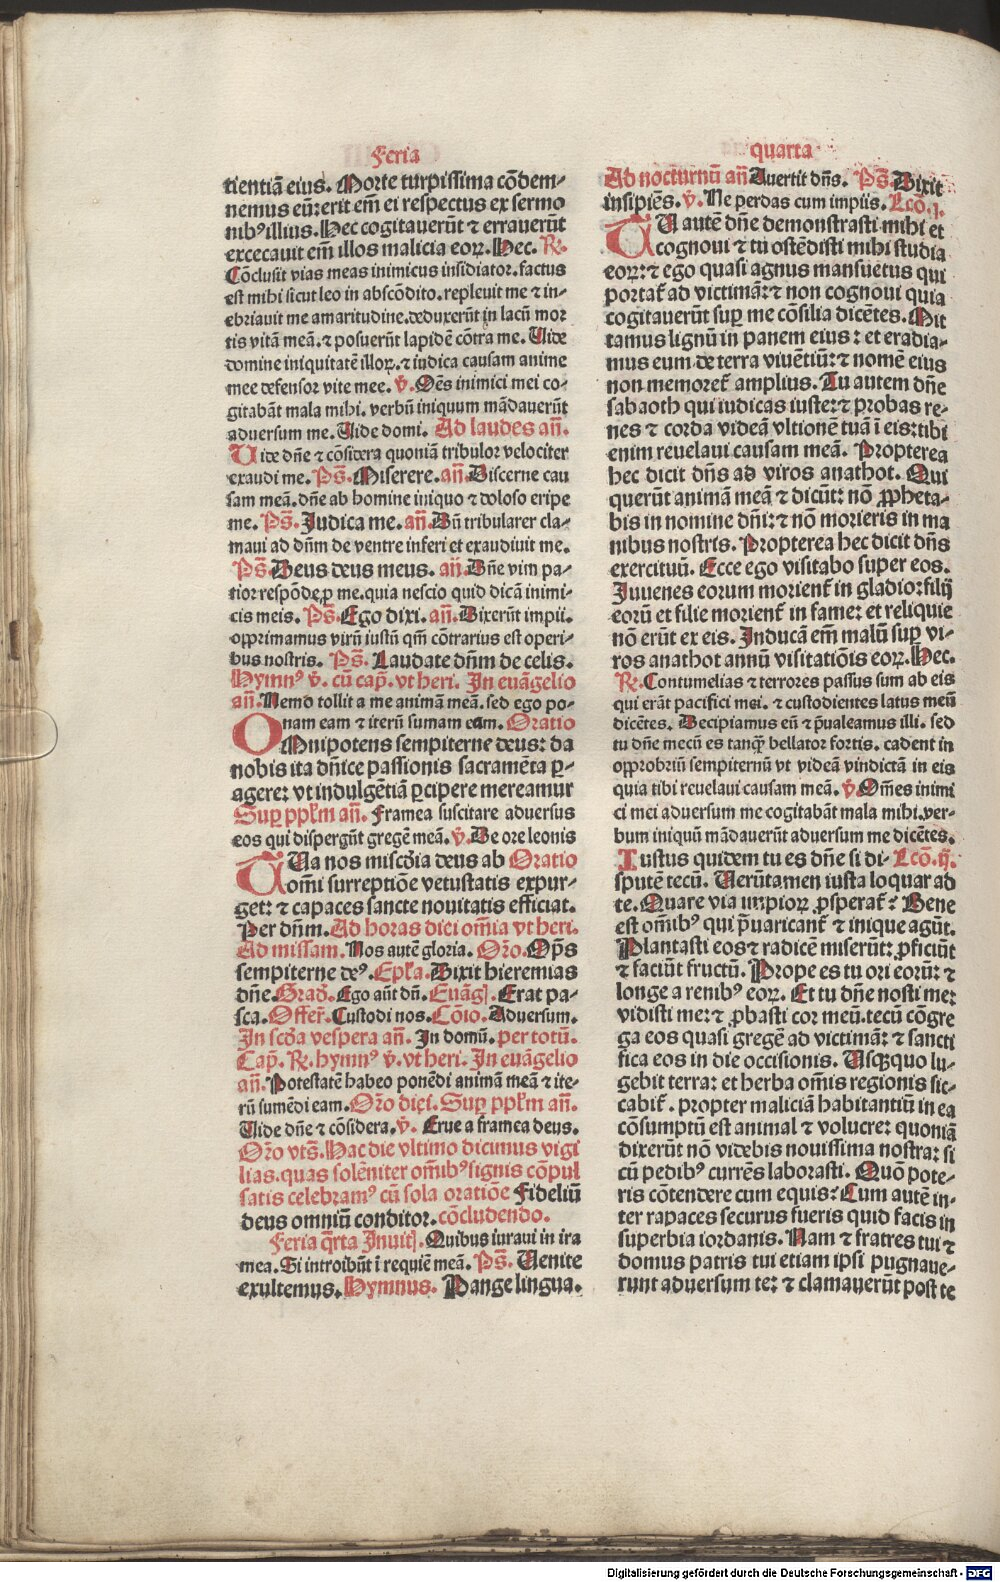 Feria
tientiā eius. Morte turpissima cōdem⸗
nemus eū: erit em̄ ei respectus ex sermo
nibꝰ illius. Hec cogitauerūt ⁊ errauerūt
excecauit em̄ illos malicia eoꝝ. Hec. ℟.
Cōclusit vias meas inimicus insidiator. factus
est mihi sicut leo in abscōdito. repleuit me ⁊ in⸗
ebriauit me amaritudine. deduxerūt in lacū mor
tis vitā meā. ⁊ posuerūt lapidē cōtra me. Uide
domine iniquitatē illoꝝ. ⁊ iudica causam anime
mee defensor vite mee. ℣. Oēs inimici mei co⸗
gitabāt mala mihi. verbū iniquum mādauerūt
aduersum me. Uide domi. Ad laudes an̄.
Uide dn̄e ⁊ cōsidera quoniā tribulor velociter
exaudi me. Ps̄. Miserere. an̄. Discerne cau
sam meā. dn̄e ab homine iniquo ⁊ doloso eripe
me. Ps̄. Judica me. an̄. Dū tribularer cla⸗
maui ad dn̄m de ventre inferi et exaudiuit me.
Ps̄. Deus deus meus. an̄. Dn̄e vim pa⸗
tior respōde ꝓ me. quia nescio quid dicā inimi⸗
cis meis. Ps̄. Ego dixi. an̄. Dixerūt impii.
opprimamus virū iustū qm̄ cōtrarius est operi⸗
bus nostris. Ps̄. Laudate dn̄m de celis.
Hymnꝰ ℣. cū cap̄. vt heri. In euāgelio
an̄. Nemo tollit a me animam meā. sed ego po⸗
nam eam ⁊ iterū sumam eam. Oratio
OMnipotens sempiterne deus: da
nobis ita dn̄ice passionis sacramēta ꝑ⸗
agere: vt indulgētiā ꝑcipere mereamur
Suꝑ ppl̄m an̄. Framea suscitare aduersus
eos qui dispergūt gregē meā. ℣. De ore leonis
TUa nos misc̄dia deus ab Oratio
om̄i surreptiōe vetustatis expur⸗
get: ⁊ capaces sancte nouitatis efficiat.
Per dn̄m. Ad horas diei om̄ia vt heri.
Ad missam. Nos autē gloria. Or̄o. Om̄ps
sempiterne deꝰ. Epl̄a. Dixit hieremias
dn̄e. Grad̄. Ego aūt dū. Euāgl̄. Erat pa⸗
sca. Offer̄. Custodi nos. Cōio. Aduersum.
In sc̄da vespera an̄. In domū. per totū.
Cap̄. ℟. hymnꝰ ℣. vt heri. In euāgelio
an̄. Potestatē habeo ponēdi animā meā ⁊ ite⸗
rū sumēdi eam. Or̄o diei. Suꝑ ppl̄m an̄.
Uide dn̄e ⁊ cōsidera. ℣. Erue a framea deus.
Or̄o vts̄. Hac die vltimo dicimus vigi
lias. quas solēniter om̄ibꝰ signis cōpul
satis celebramꝰ cū sola oratiōe Fideliū
deus omniū conditor. cōcludendo.
Feria q̄rta Inuitl̄. Quibus iuraui in ira
mea. Si introibūt ī requiē meā. Ps̄. Uenite
exultemus. Hymnus. Pange lingua.
quarta
Ad nocturnū an̄ Auertit dn̄s. Ps̄. Dixit
insipiēs. ℣. Ne perdas cum impiis. Lc̄o. j.
TU autē dn̄e demonstrasti mihi et
cognoui ⁊ tu ostēdisti mihi studia
eoꝝ: ⁊ ego quasi agnus mansuetus qui
portat̄ ad victimā: ⁊ non cognoui quia
cogitauerūt suꝑ me cōsilia dicētes. Mit
tamus lignū in panem eius: et eradia⸗
mus eum de terra viuētiū: ⁊ nomē eius
non memoret̄ amplius. Tu autem dn̄e
sabaoth qui iudicas iuste: ⁊ probas re⸗
nes ⁊ corda videā vltionē tuā ī eis: tibi
enim reuelaui causam meā. Propterea
hec dicit dn̄s ad viros anathot. Qui
querūt animā meā ⁊ dicūt: nō ꝓpheta⸗
bis in nomine dn̄i: ⁊ nō morieris in ma
nibus nostris. Propterea hec dicit dn̄s
exercituū. Ecce ego visitabo super eos.
Juuenes eorum morient̄ in gladio: filij
eorū et filie morient̄ in fame: et reliquie
nō erūt ex eis. Inducā em̄ malū suꝑ vi⸗
ros anathot annū visitatiōis eoꝝ. Hec.
℟. Contumelias ⁊ terrores passus sum ab eis
qui erāt pacifici mei. ⁊ custodientes latus meū
dicētes. Decipiamus eū ⁊ p̄ualeamus illi. sed
tu dn̄e mecū es tanqȝ bellator fortis. cadent in
opprobriū sempiternū vt videā vindictā in eis
quia tibi reuelaui causam meā. ℣. Om̄es inimi
ci mei aduersum me cogitabāt mala mihi. ver⸗
bum iniquū mādauerūt aduersum me dicētes.
Iustus quidem tu es dn̄e si di⸗ Lc̄o. ij.
sputē tecū. Uerūtamen iusta loquar ad
te. Quare via impioꝝ ꝓsperat̄? Bene
est om̄ibꝰ qui p̄uaricant̄ ⁊ inique agūt.
Plantasti eos ⁊ radicē miserūt: ꝓficiūt
⁊ faciūt fructū. Prope es tu ori eorū: ⁊
longe a renibꝰ eoꝝ. Et tu dn̄e nosti me:
vidisti me: ⁊ ꝓbasti cor meū. tecū cōgre
ga eos quasi gregē ad victimā: ⁊ sancti
fica eos in die occisionis. Usqȝquo lu⸗
gebit terra: et herba om̄is regionis sic⸗
cabit̄. propter maliciā habitantiū in ea
cōsumptū est animal ⁊ volucre: quoniā
dixerūt nō videbis nouissima nostra: si
cū pedibꝰ currēs laborasti. Quō pote⸗
ris cōtendere cum equis? Cum autē in⸗
ter rapaces securus fueris quid facis in
superbia iordanis. Nam ⁊ fratres tui ⁊
domus patris tui etiam ipsi pugnaue⸗
runt aduersum te: ⁊ clamauerūt post te
Digitalisierung gefördert durch die Deutsche Forschungsgemeinschaft - DFG